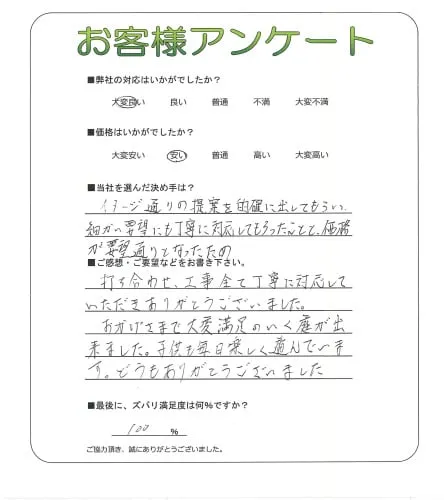 お客様アンケート
■弊社の対応はいかがでしたか?
大変良い 良い 普通 不満 大変不満
■価格はいかがでしたか?
大変安い 安い 普通 高い 大変高い
■当社を選んだ決め手は?
イメージ通りの提案を的確に出してもらい、
細かい要望にも丁寧に対応してもらったことと、価格
が要望通りとなったため
■ご感想・ご要望などをお書き下さい。
打ち合わせ、工事全て丁寧に対応して
いただきありがとうございました。
おかげさまで大変満足のいく庭が出
来ました。子供も毎日楽しく遊んでいま
す。どうもありがとうございました
■最後に、ズバリ満足度は何%ですか?
100 %
ご協力頂き、誠にありがとうございました。